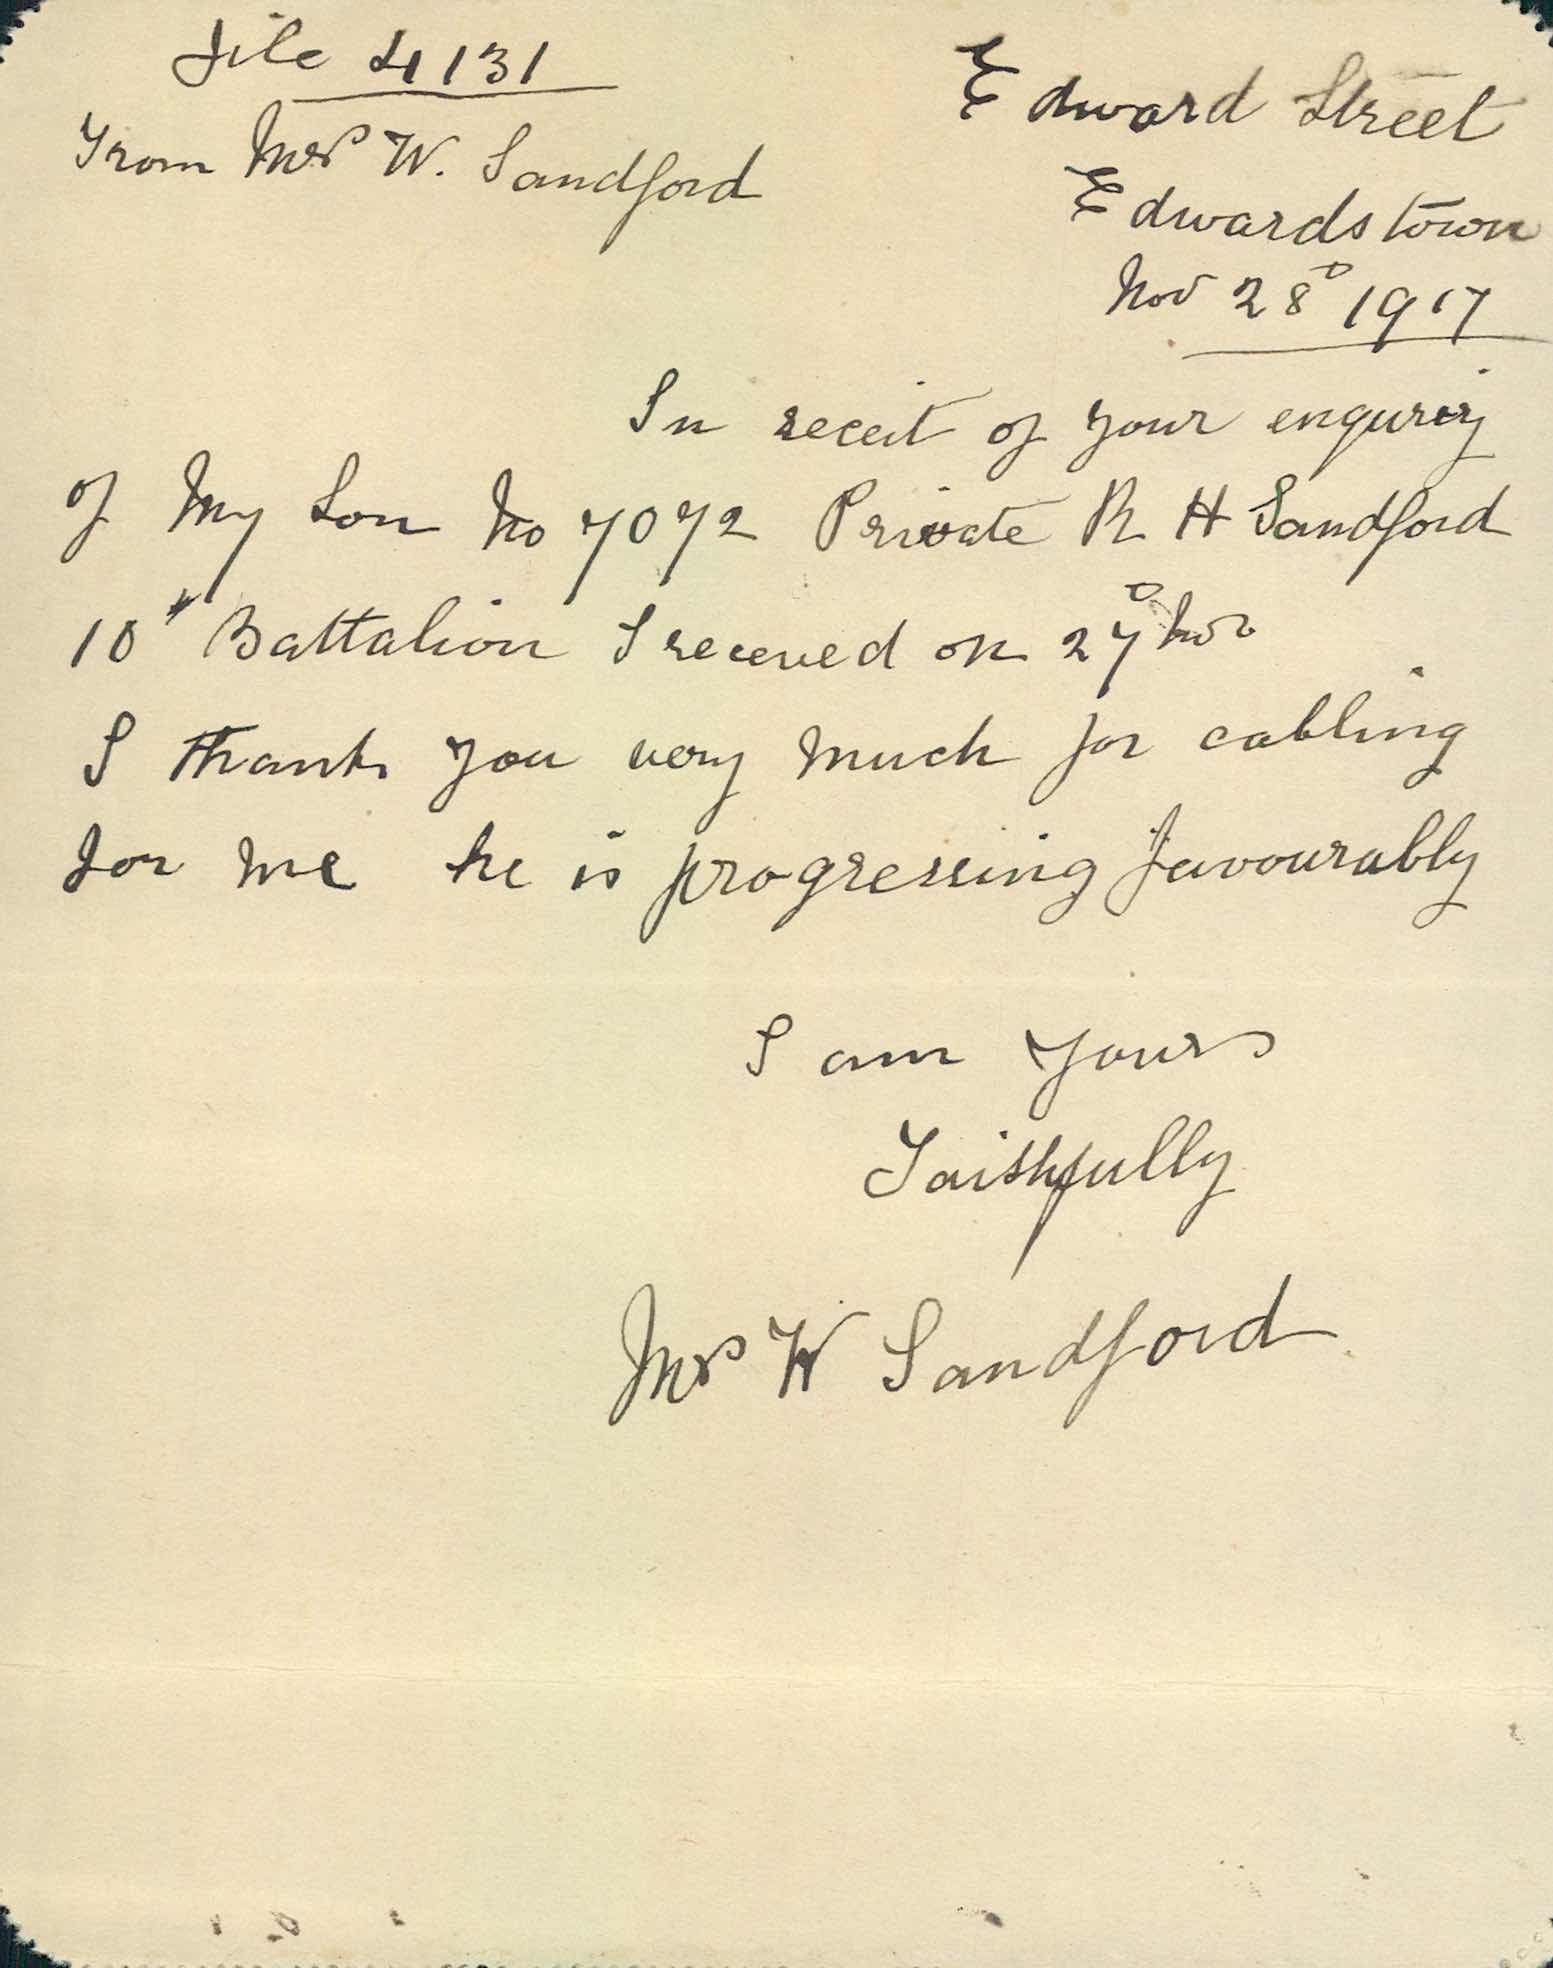 File 4131
From Mrs W. Sandford
Edward Street
Edwardstown
Nov 28 1917
In receit of your enquriy
of My Son No 7072 Private R H Sandford
10th Battalion I receved on 27 Nov
I thank you very much for cabling
for me he is progressing favourably
I am Yours
Faithfully
Mrs W Sandford